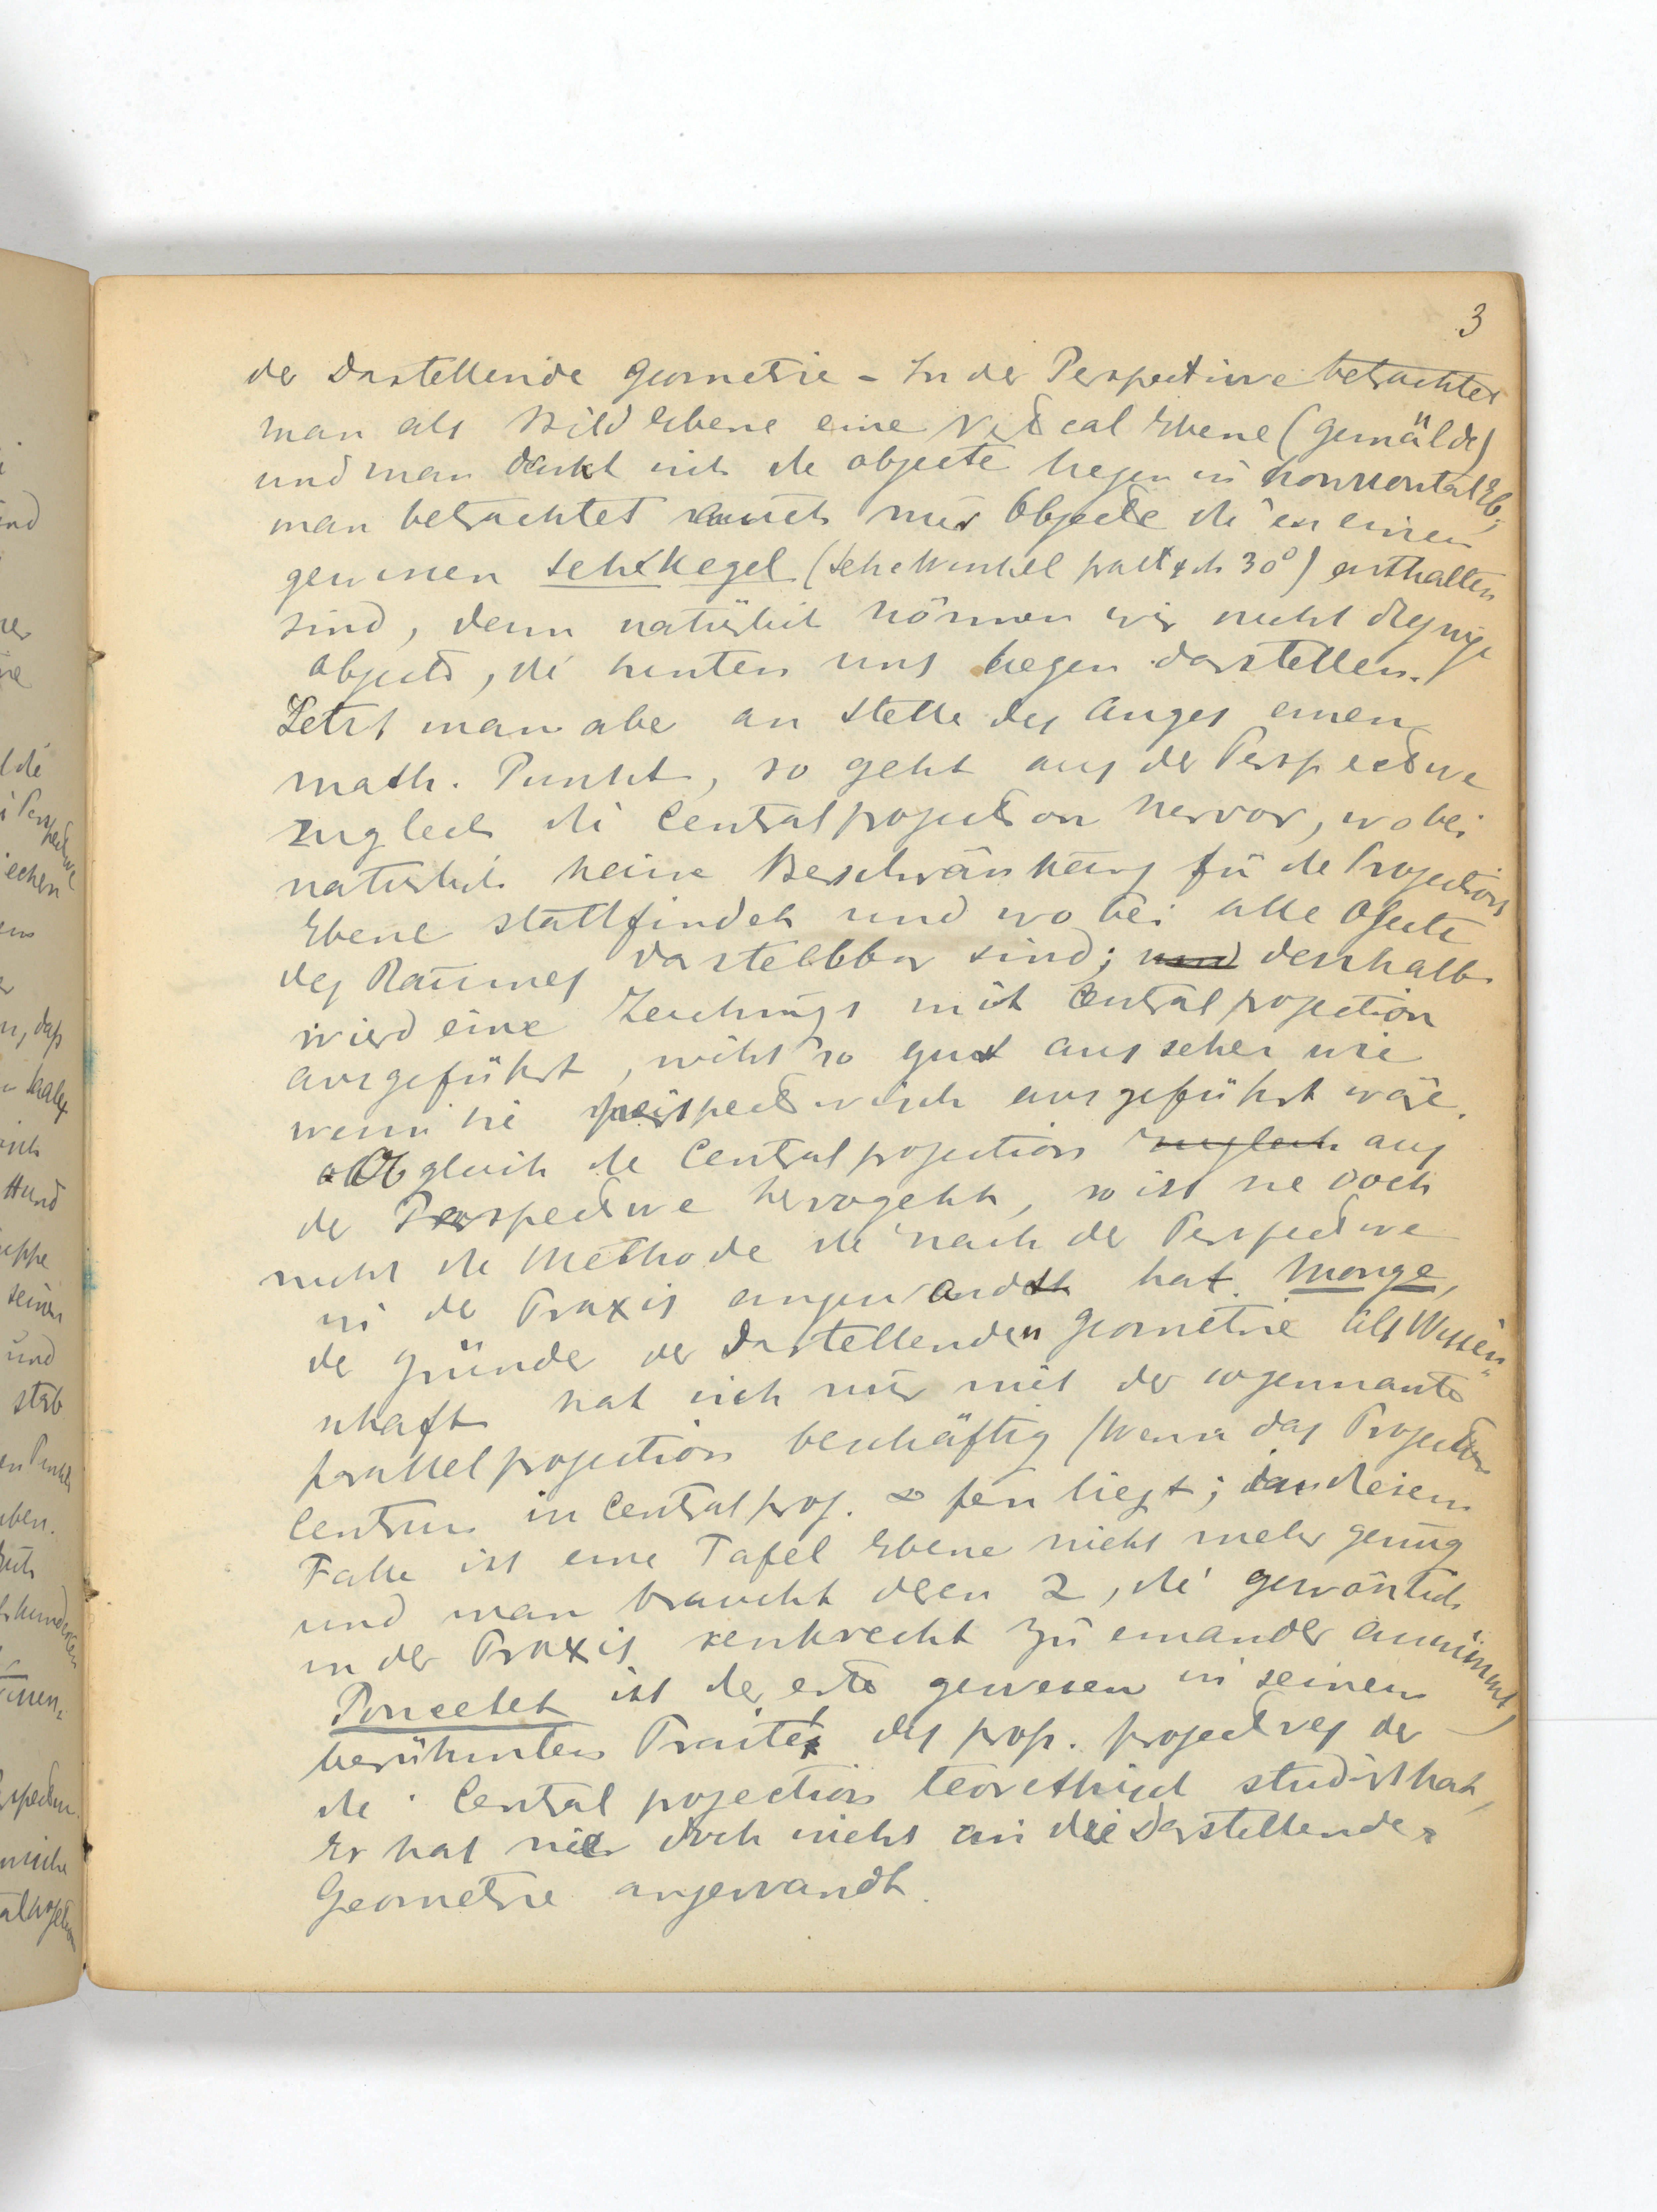 3
der Darstellende Geometrie – In der Perspective betrachtet
man als Bild Ebene eine Vertical Ebene (Gemälde)
und man denkt sich die objecte liegen in horizontal Eb.;
man betrachtet auch nur Objecte die in einen
gewissen Sehkegel (Sehe Winkel praktisch 30°) enthalten
sind, denn natürlich können wir nicht diejenige
Objecte, die hinten uns liegen darstellen.
Setzt man aber an Stelle des Auges einen
math. Punkt, so geht aus der Perspective
zugleich die Centralprojection hervor, wobei
natürlich keine Beschränkung für die Projections
Ebene stattfindet und wobei alle Objecte
des Raumes darstellbar sind; und desshalb
wird eine Zeichnung mit Central projection
ausgeführt, nicht so gut aussehen wie
wenn sie perspectivisch ausgeführt wäre.
Obgleich die Centralprojection zugleich aus
der Perspective hervorgeht, so ist sie doch
nicht die Methode die nach der Perspective
in der Praxis angewandt hat. Monge,
der Gründer der Darstellenden Geometrie als Wissen-
schaft hat sich nur mit der sogennante
parallelprojection beschäftig (Wenn das Projection
Centrum in Centralproj. ∞ fern liegt; in diesem
Falle ist eine Tafel Ebene nicht mehr genug
und man braucht deren 2, die gewönlich
in der Praxis senkrecht zu einander annimmt)
Poncelet ist der erste gewesen in seinem
berühmten Traité des prop. projectives der
die Central projection teorethisch studirt hat,
Er hat sie doch nicht an die Darstellende
Geometrie angewandt.